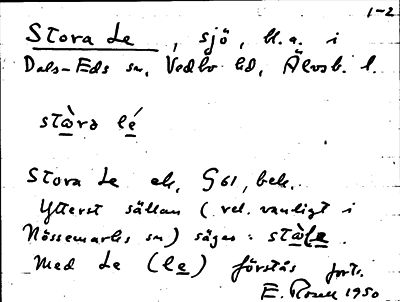 1-2
Stora Le, sjö, bl.a. i
Dals-Eds sn, Vedbo hd, Älvsb. l.
Stora Le ek, G61, bek.
Ytterst sällan (rel. vanligt i
Nössemarks sn) säges:
Med Le (le) förstås forts.
1950